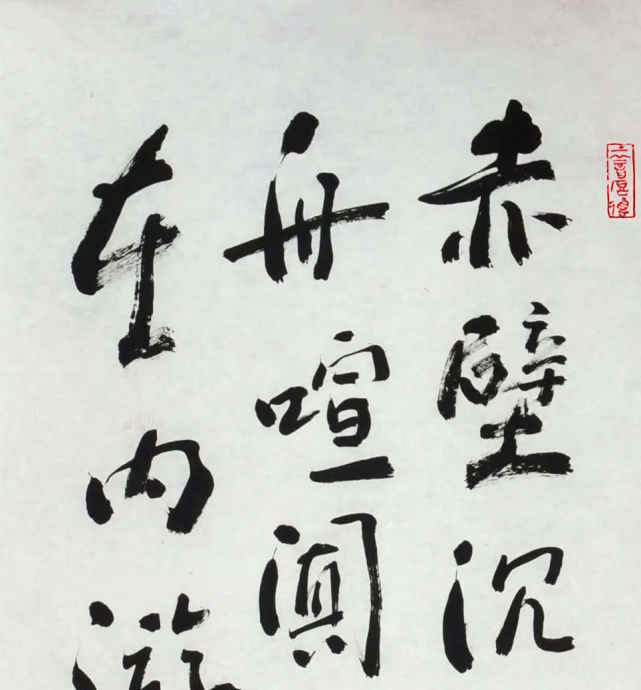 赤壁沉
舟喧阗
在内游